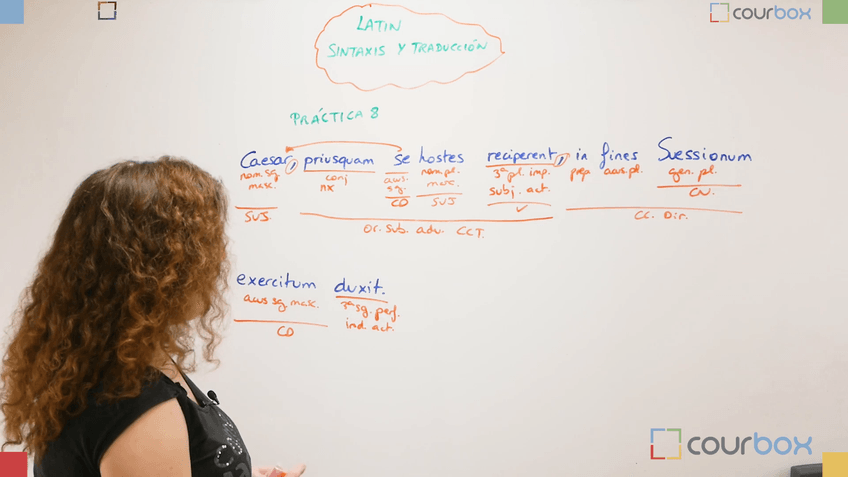 courbox
LATIN
SINTAXIS Y TRADUCCIÓN
PRÁCTICA 8
Caesar, priusquam se hostes reciperent, in fines Suessionum
nom. sg. conj acus. nom. pl. 3ª pl. imp. prep acus. pl. gen. pl.
masc. nx sg. masc. subj. act. CN.
SUJ CD SUJ V CC. Dir.
Or. sub. adv. CCT.
exercitum duxit.
acus sg. masc. 3ª sg. perf.
CD ind. act.
courbox